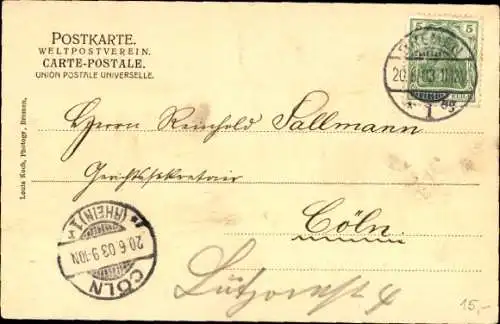 POSTKARTE.
WELTPOSTVEREIN.
CARTE-POSTALE.
UNION POSTALE UNIVERSELLE.
5 5
BREMEN
20.6.03.11-12V
* 1 *
Louis Koch, Photogr., Bremen.
Herrn Reinhold Sallmann
Gerichtssekretair
Cöln.
CÖLN
20.6.03.9-10N
*(RHEIN)1*
15,-